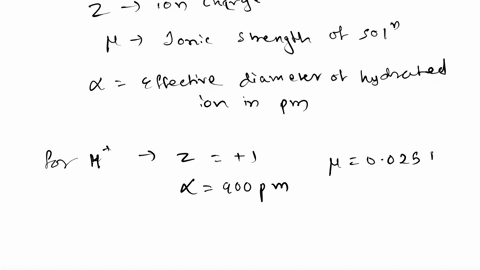 Z → ion charge
μ → Ionic strength of solⁿ
α = Effective diameter of hydrated
ion in pm
for H⁺ → Z = +1 μ = 0.025
α = 900 pm